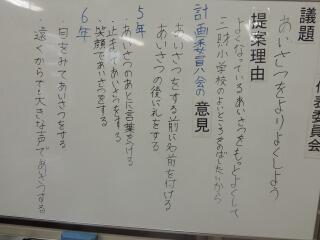 代表委員会
議題
あいさつをよりよくしよう
提案理由
よくなっているあいさつをもっとよくして
三財小学校のよいところをのばしたいから
計画委員会の意見
・あいさつをする前に名前を付ける
・あいさつの後に礼をする
5年
・あいさつのあとに言葉をつける
・止まってあいさつをする
・笑顔であいさつをする
6年
・目をみてあいさつをする
・遠くからでも大きな声であいさつする